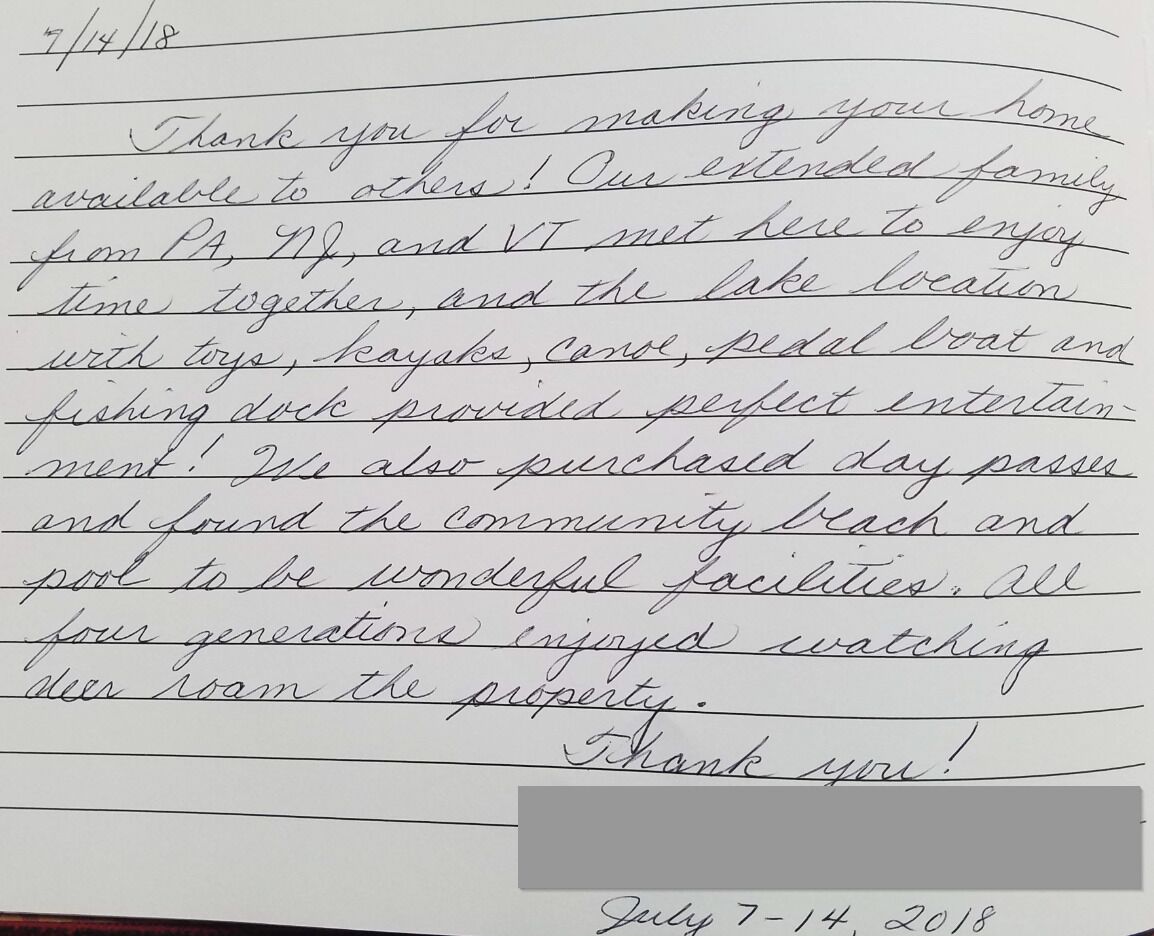 7/14/18
Thank you for making your home
available to others! Our extended family
from PA, NJ, and VT met here to enjoy
time together, and the lake location
with toys, kayaks, canoe, pedal boat and
fishing dock provided perfect entertain-
ment! We also purchased day passes
and found the community beach and
pool to be wonderful facilities. All
four generations enjoyed watching
deer roam the property.
Thank you!
July 7-14, 2018